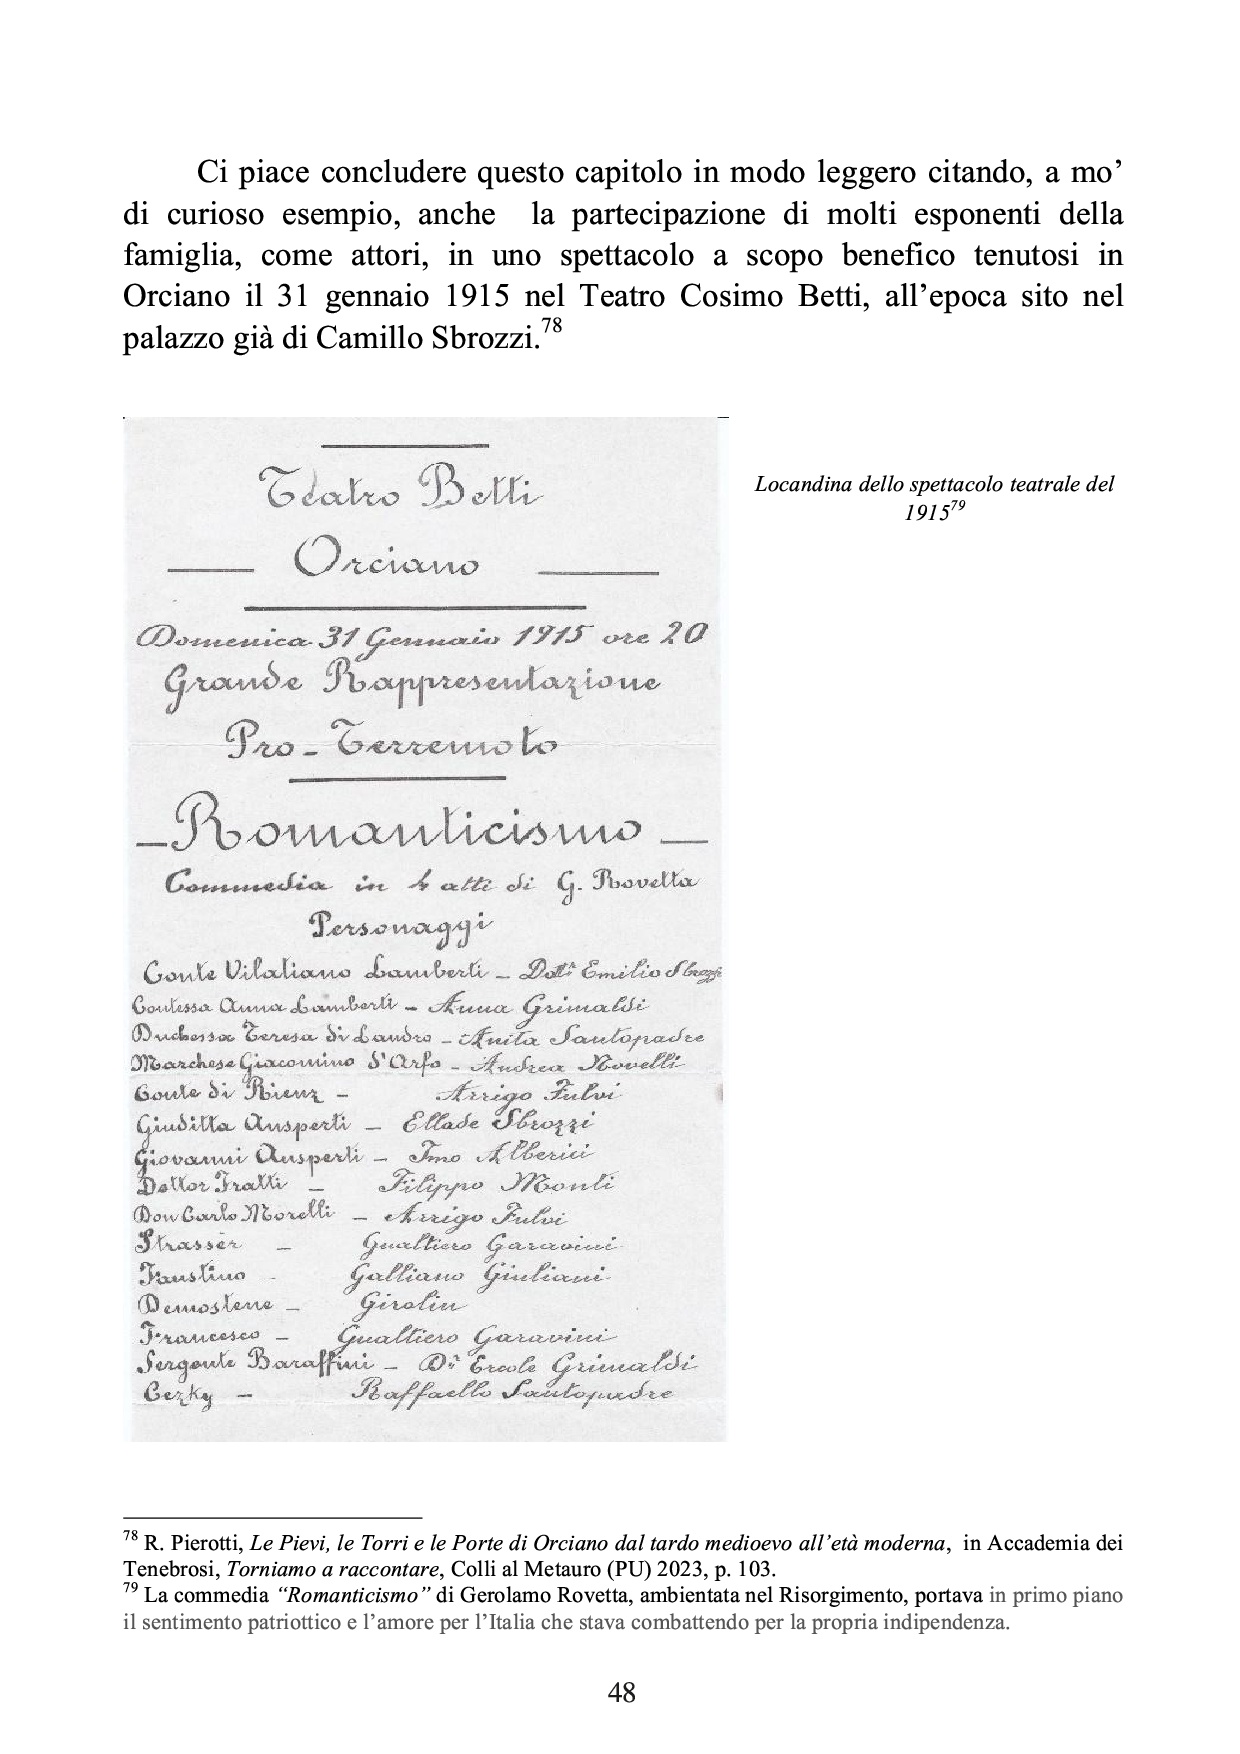 Ci piace concludere questo capitolo in modo leggero citando, a mo’
di curioso esempio, anche la partecipazione di molti esponenti della
famiglia, come attori, in uno spettacolo a scopo benefico tenutosi in
Orciano il 31 gennaio 1915 nel Teatro Cosimo Betti, all’epoca sito nel
palazzo già di Camillo Sbrozzi.78
Teatro Betti
Orciano
Domenica 31 Gennaio 1915 ore 20
Grande Rappresentazione
Pro-Terremoto
Romanticismo
Commedia in 4 atti di G. Rovetta
Personaggi
Conte Vitaliano Lamberti - Dott. Emilio Sbrozzi
Contessa Anna Lamberti - Anna Grimaldi
Duchessa Teresa di Landro - Anita Santopadre
Marchese Giacomino d'Arfo - Andrea Novelli
Conte di Rienz - Arrigo Fulvi
Giuditta Ansperti - Ellade Sbrozzi
Giovanni Ansperti - Imo Alberici
Dottor Fratti - Filippo Monti
Don Carlo Morelli - Arrigo Fulvi
Strasser - Gualtiero Garavini
Faustino - Galliano Giuliani
Demostene - Girolin
Francesco - Gualtiero Garavini
Sergente Baraffini - Dr Ercole Grimaldi
Cezky - Raffaello Santopadre
Locandina dello spettacolo teatrale del
191579
78 R. Pierotti, Le Pievi, le Torri e le Porte di Orciano dal tardo medioevo all’età moderna, in Accademia dei
Tenebrosi, Torniamo a raccontare, Colli al Metauro (PU) 2023, p. 103.
79 La commedia “Romanticismo” di Gerolamo Rovetta, ambientata nel Risorgimento, portava in primo piano
il sentimento patriottico e l’amore per l’Italia che stava combattendo per la propria indipendenza.
48